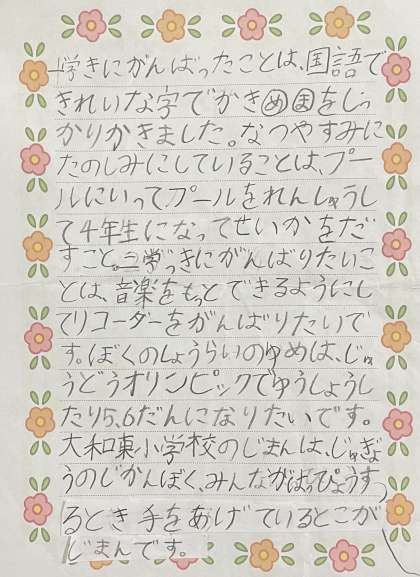 一学きにがんばったことは、国語で
きれいな字でかきめあをじっ
かりかきました。なつやすみに
たのしみにしていることは、プー
ルにいってプールをれんしゅうし
て4年生になってせいかをだ
すこと。二学っきにがんばりたいこ
とは、音楽をもっとできるようにし
てリコーダーをがんばりたいで
す。ぼくのしょうらいのゆめは、じゅ
うどうオリンピックでゆうしょうし
たり5、6だんになりたいです。
大和東小学校のじまんは、じゅぎょ
うのじかんぼく、みんながはっぴょうす
るとき手をあげているとこが
じまんです。